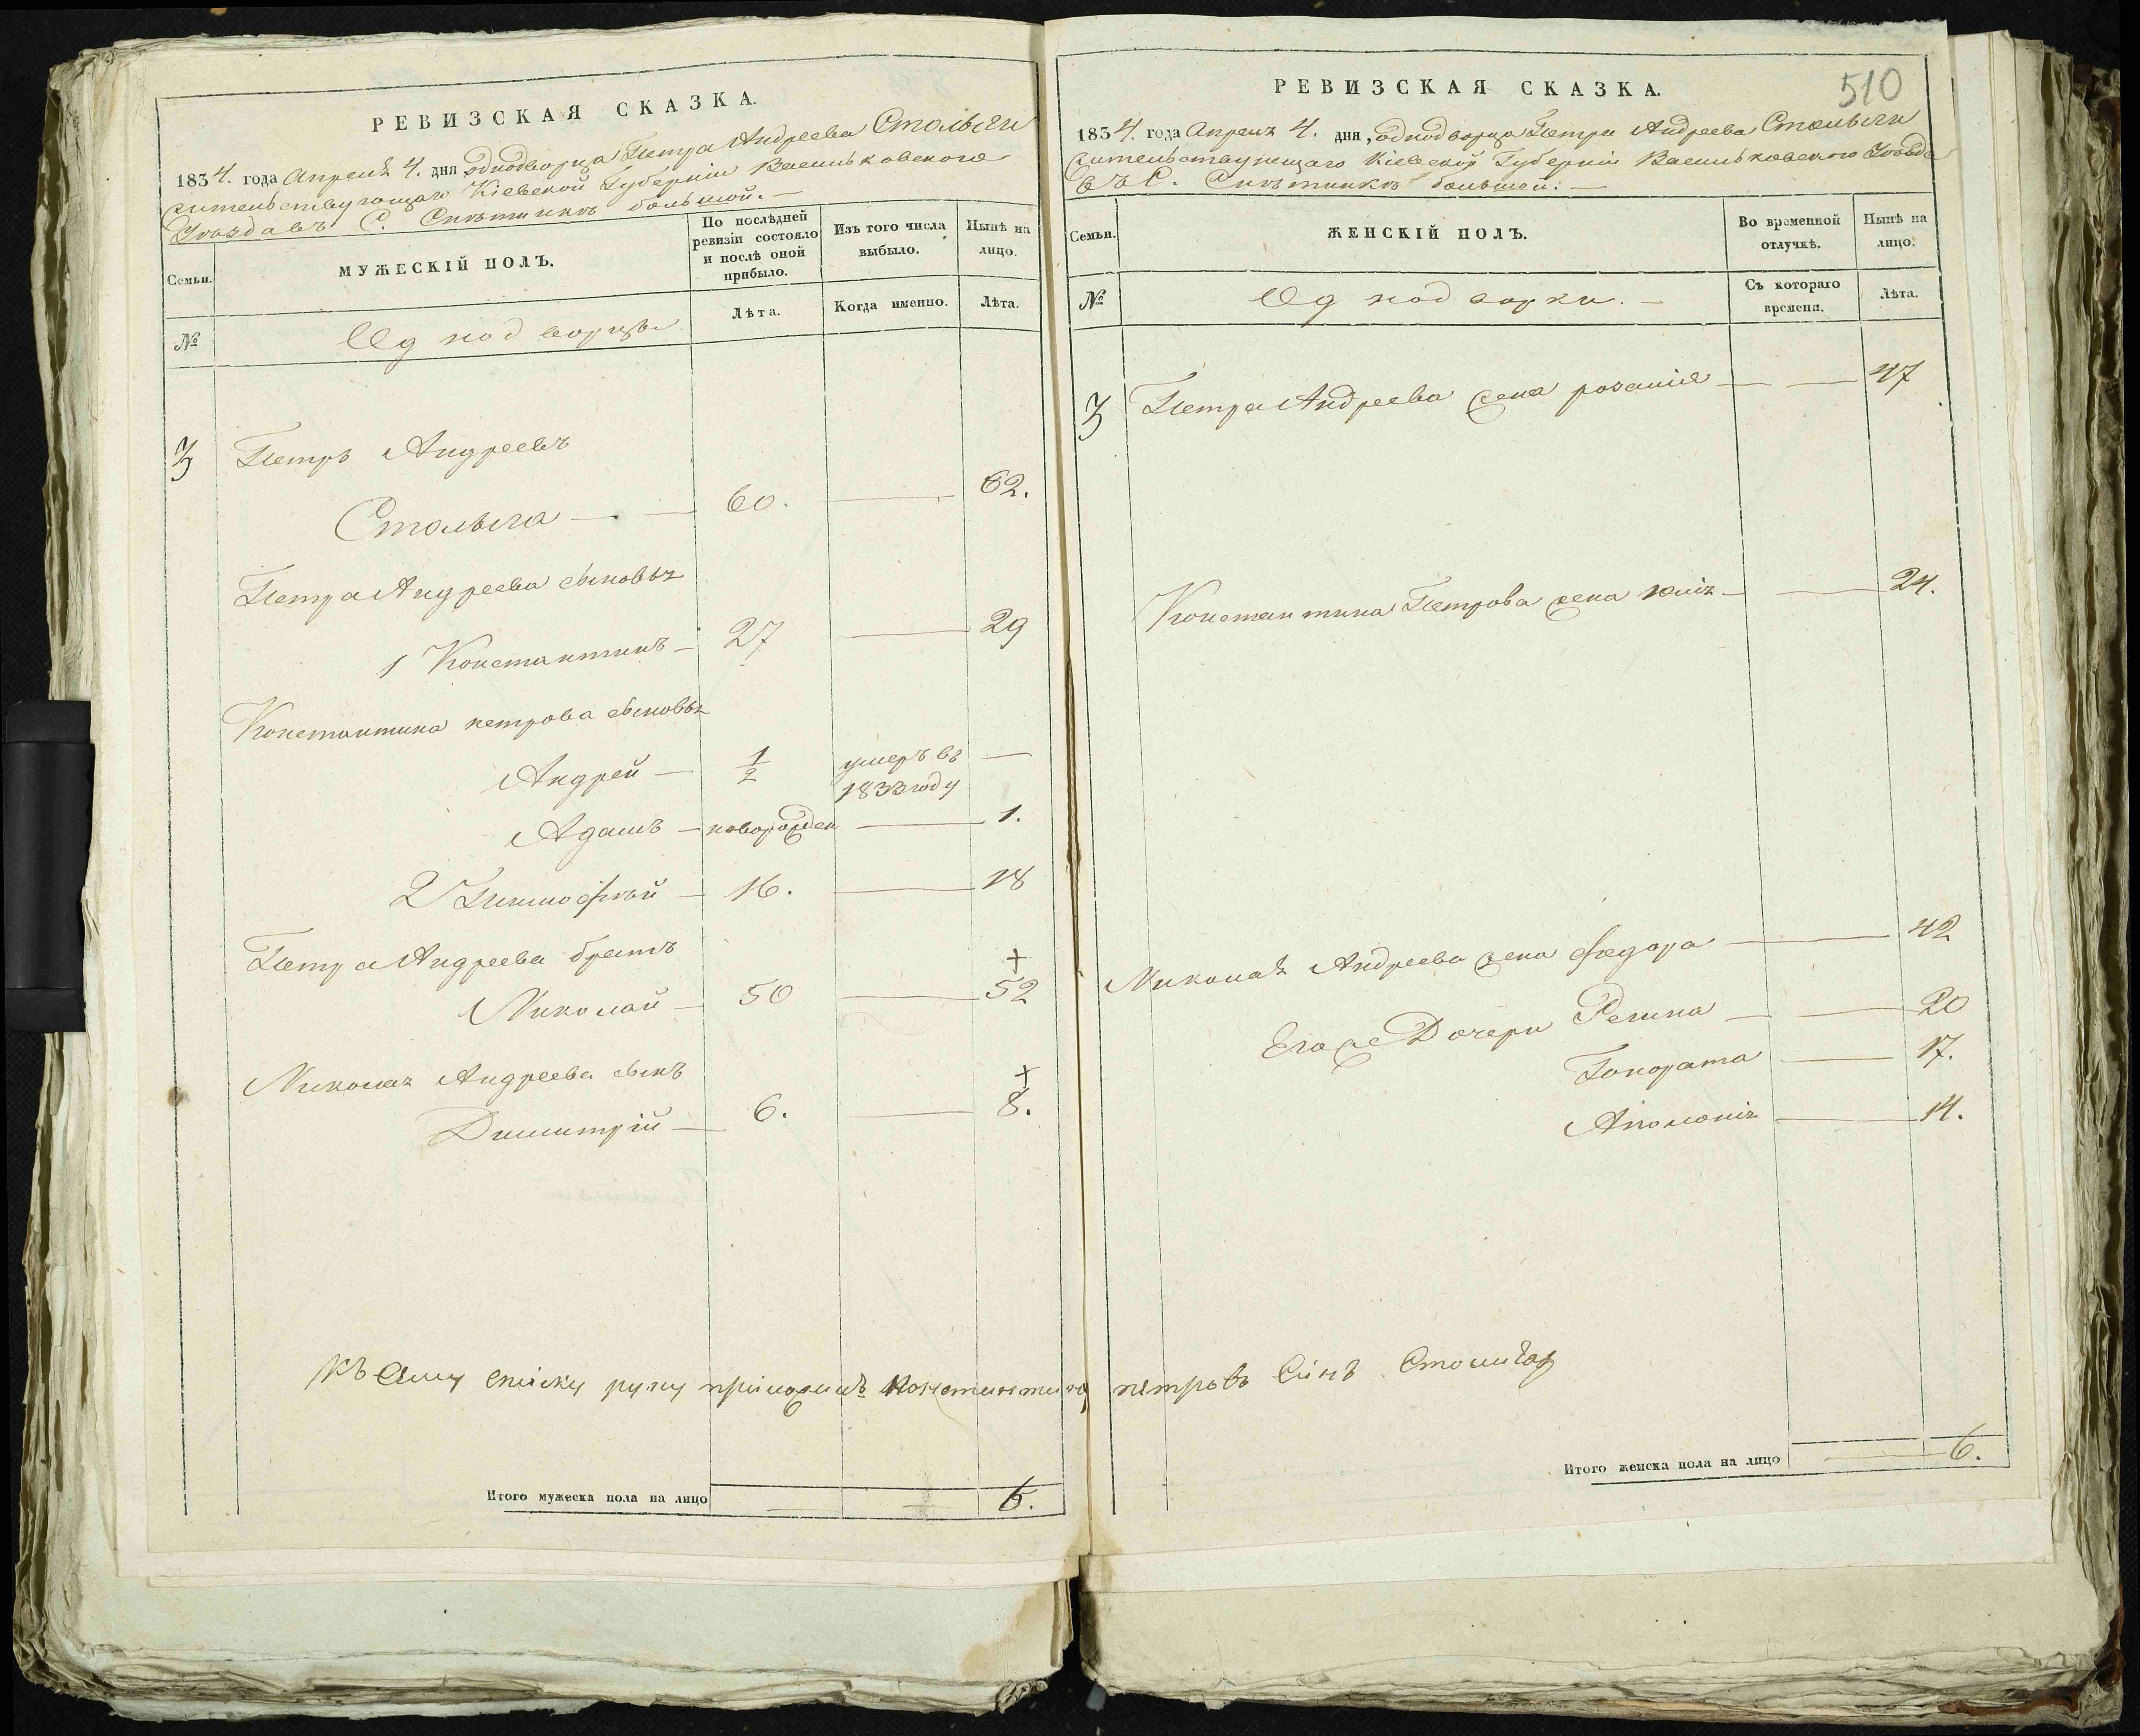 РЕВИЗСКАЯ СКАЗКА.
1834. года Апреля 4. дня однодворца Петра Андреева Стольыги
жительствующаго Кіевской Губерніи Васильковского
Уѣзда въ С. Снѣтинкѣ большой.
Семьи.
МУЖЕСКІЙ ПОЛЪ.
По послѣдней
ревизіи состояло
и послѣ оной
прибыло.
Изъ того числа
выбыло.
Нынѣ на
лицо.
№
Однодворцы
Лѣта.
Когда именно.
Лѣта.
3 Петръ Андреевъ
Стольыга 60. 62.
Петра Андреева сыновья
1 Константинъ 27 29
Константина петрова сыновья
Андрей 1/2 умеръ въ
1833 году
Адамъ новорожден 1.
2 Тимофѣй 16. 18
Петра Андреева братъ
Николай 50 52
Николая Андреева сынъ
Димитрій 6. 8.
Итого мужеска пола на лицо 6.
510
РЕВИЗСКАЯ СКАЗКА.
1834. года Апреля 4. дня, однодворца Петра Андреева Стольыги
жительствующаго Кіевской Губерніи Васильковского Уѣзда
въ С. Снѣтинкѣ большой.
Семьи.
ЖЕНСКІЙ ПОЛЪ.
Во временной
отлучкѣ.
Нынѣ на
лицо.
№
Однодворки.
Съ котораго
времени.
Лѣта.
3 Петра Андреева жена розалія 47
Константина Петрова жена юлія 24.
Николая Андреева жена Федора 42
Его же Дочери Регина 20
Гонората 17.
Аполонія 14.
Къ сему списку руку приложилъ Константинъ петровъ Синъ
Итого женска пола на лицо 6.